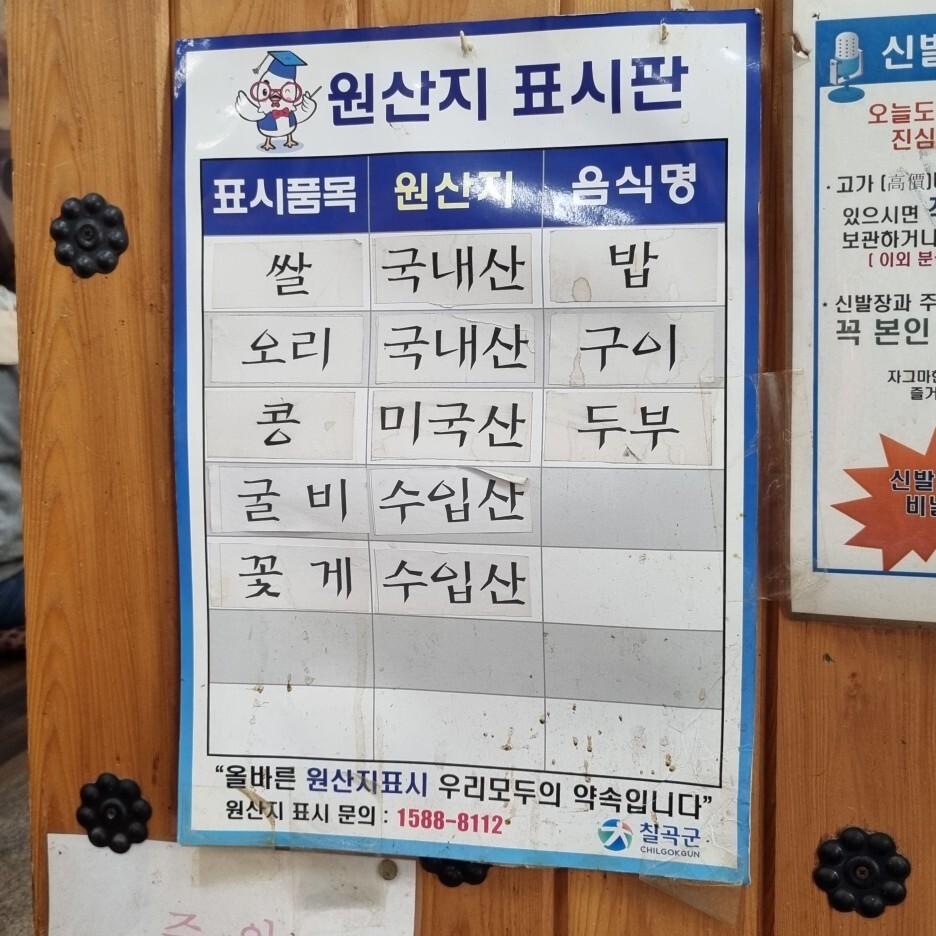 원산지 표시판
표시품목 원산지 음식명
쌀 국내산 밥
오리 국내산 구이
콩 미국산 두부
굴 비 수입산
꽃 게 수입산
“올바른 원산지표시 우리모두의 약속입니다”
원산지 표시 문의 : 1588-8112
칠곡군
CHILGOKGUN
신발
오늘도
진심
· 고가 (高價)
있으시면
보관하거나
[ 이외
· 신발장과
꼭 본인
자그마한
즐거
신발
주